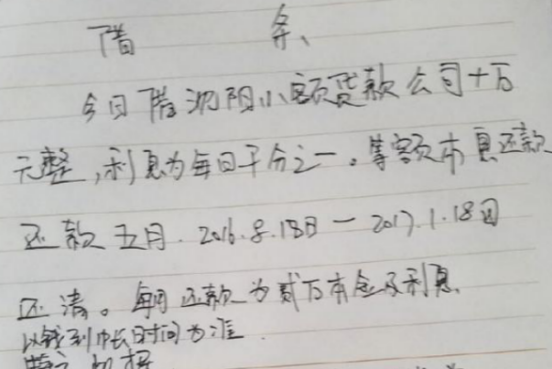 借 条、
今日借沈阳小额贷款公司十万
元整,利息为每日千分之一。等额本息还款
还款五月.2016.8.18日一2017.1.18日
还清。每月还款为贰万本金及利息.
以钱到帐日时间为准.